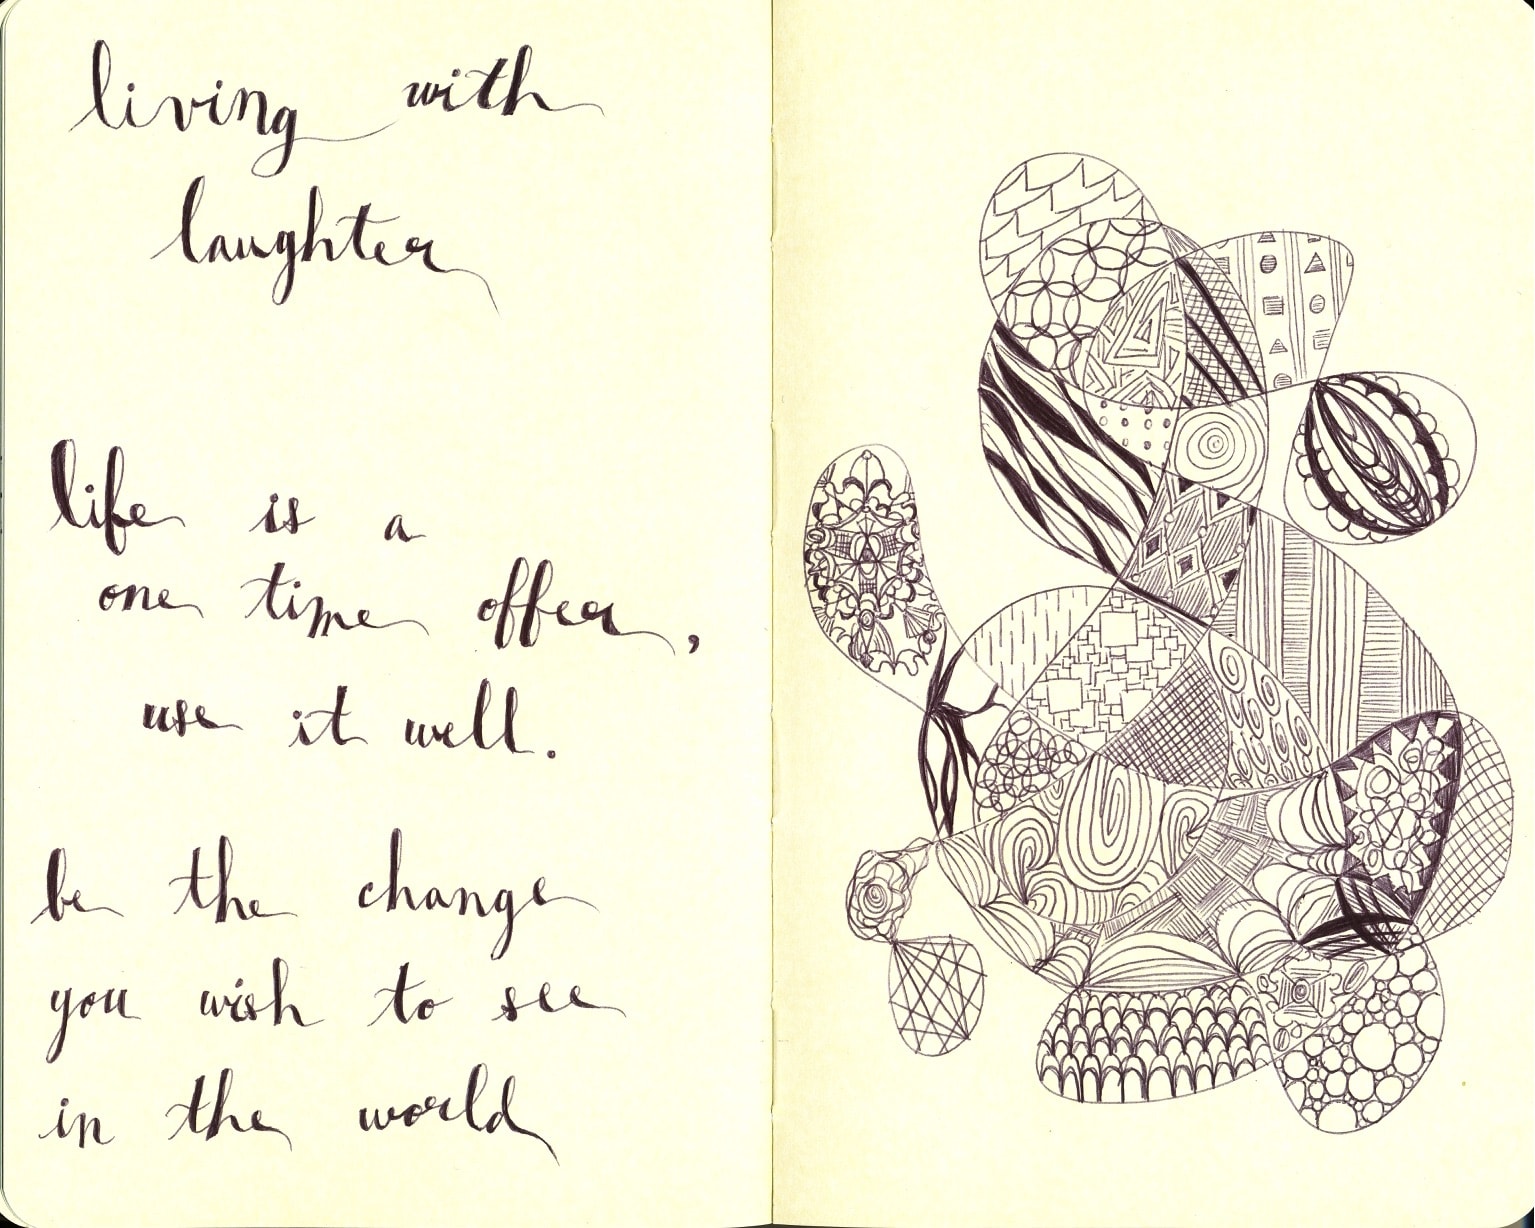 living with
laughter
life is a
one time offer,
use it well.
be the change
you wish to see
in the world